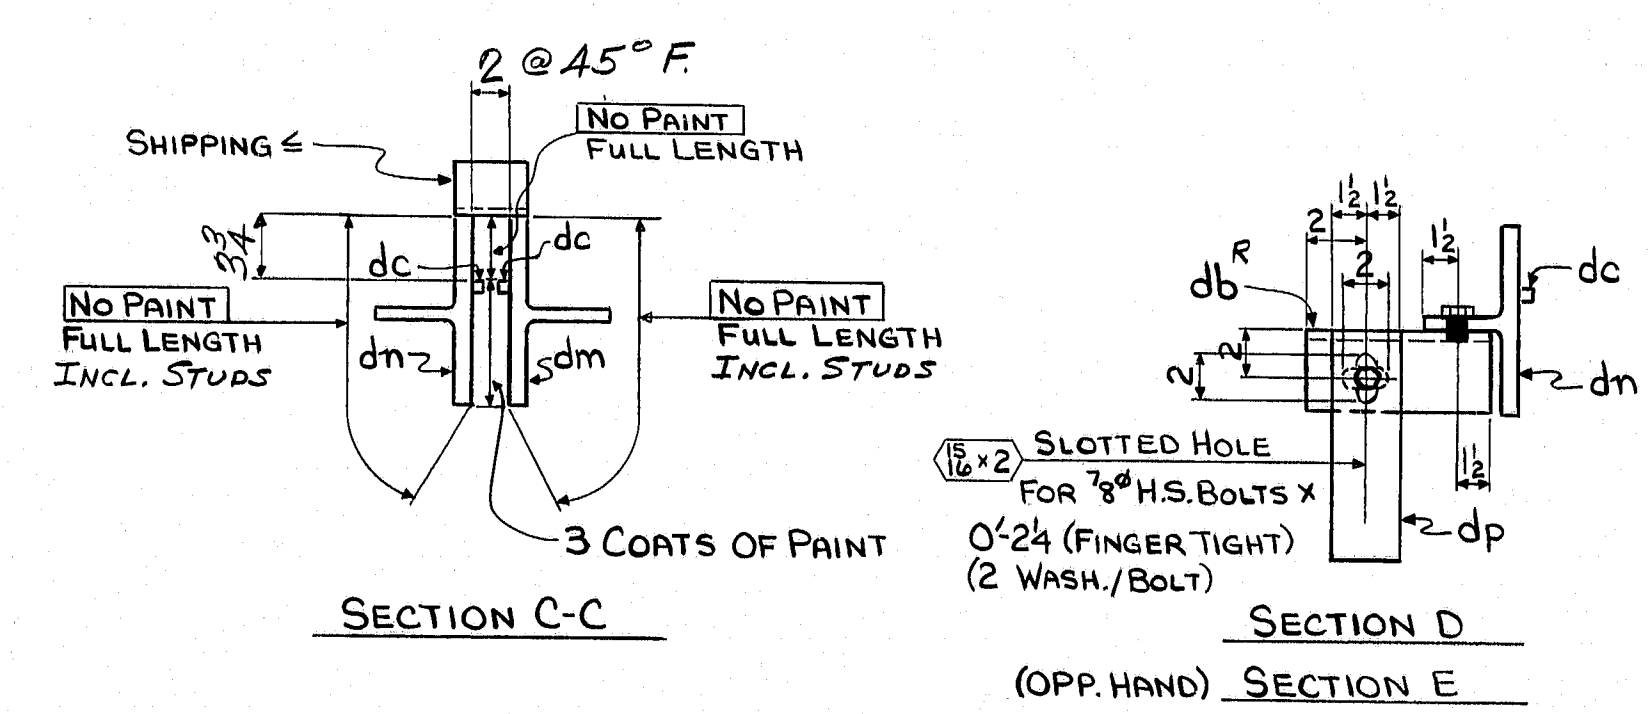 2 @ 45° F.
NO PAINT
FULL LENGTH
SHIPPING ≤
3 3/4
dc
dc
NO PAINT
FULL LENGTH
INCL. STUDS
NO PAINT
FULL LENGTH
INCL. STUDS
dn
dm
3 COATS OF PAINT
SECTION C-C
1 1/2 1 1/2
2
1 1/2
2
dbR
dc
2
2
dn
15/16 x 2
SLOTTED HOLE
FOR 7/8ø H.S. BOLTS x
0'-2 1/4 (FINGER TIGHT)
(2 WASH./BOLT)
1 1/2
dp
SECTION D
(OPP. HAND) SECTION E